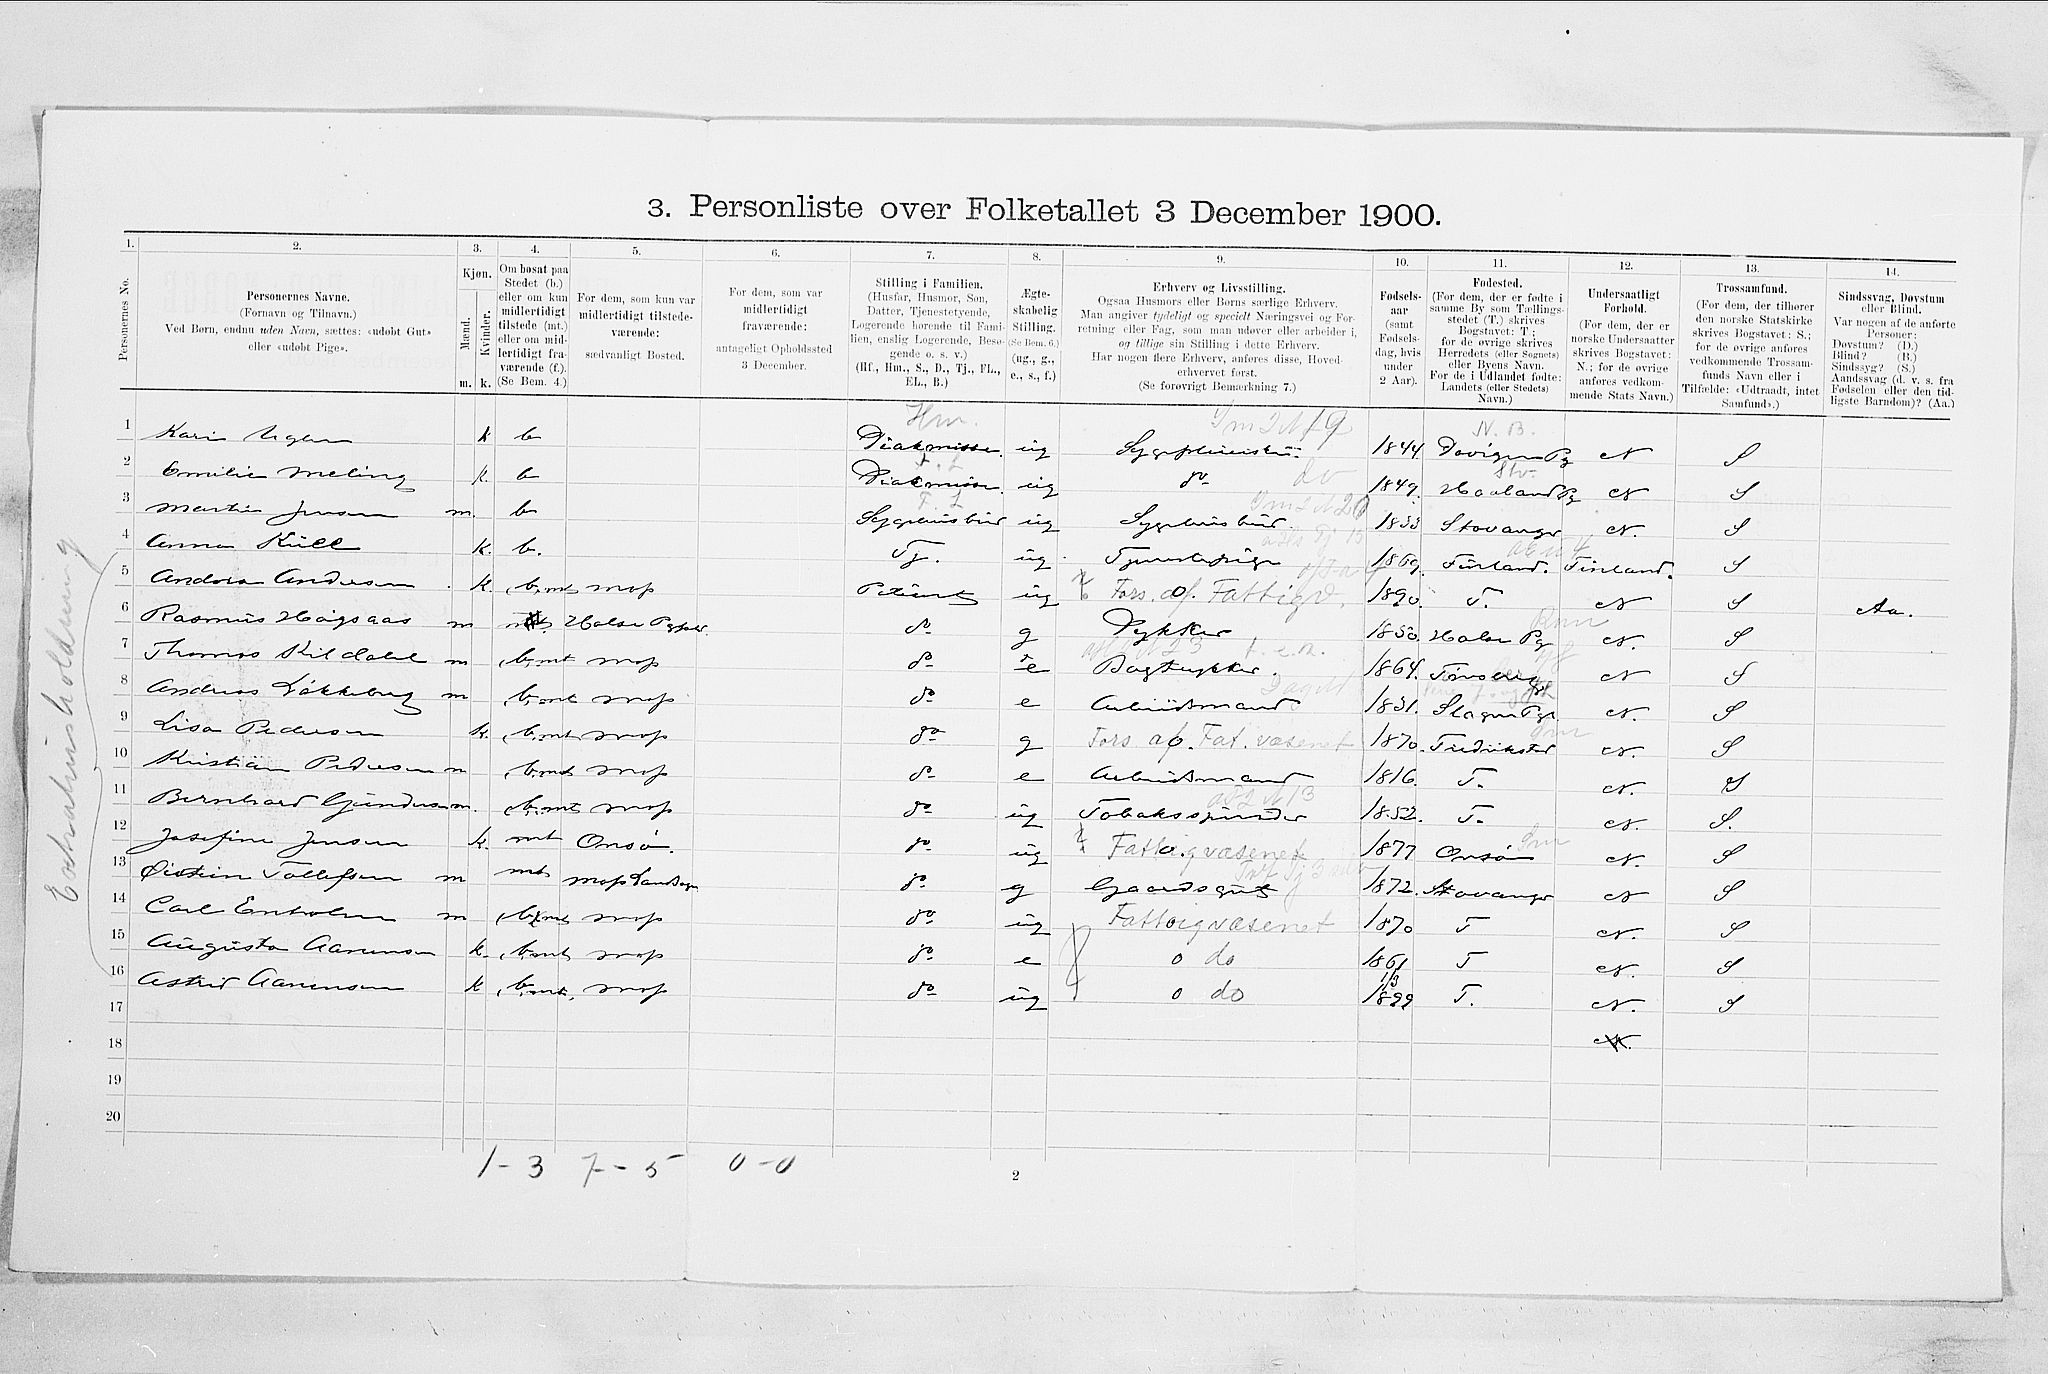 3. Personliste over Folketallet 3 December 1900.
1. 2. 3. 4. 5. 6. 7. 8. 9. 10. 11. 12. 13. 14.
Personernes No.
Personernes Navne.
(Fornavn og Tilnavn.)
Ved Børn, endnu uden Navn, sættes: «udøbt Gut»
eller «udøbt Pige».
Kjøn.
Mænd.
Kvinder.
m. k.
Om bosat paa
Stedet (b.)
eller om kun
midlertidigt
tilstede (mt.)
eller om mid-
lertidigt fra-
værende (f.).
(Se Bem. 4.)
For dem, som kun var
midlertidigt tilstede-
værende:
sædvanligt Bosted.
For dem, som var
midlertidigt
fraværende:
antageligt Opholdssted
3 December.
Stilling i Familien.
(Husfar, Husmor, Søn,
Datter, Tjenestetyende,
Logerende hørende til Fami-
lien, enslig Logerende, Besø-
gende o. s. v.)
(Hf., Hm., S., D., Tj., FL.,
EL., B.)
Ægte-
skabelig
Stilling.
(Se Bem. 6.)
(ug., g.,
e., s., f.)
Erhverv og Livsstilling.
Ogsaa Husmors eller Børns særlige Erhverv.
Man angiver tydeligt og specielt Næringsvei og For-
retning eller Fag, som man udøver eller arbeider i,
og tillige sin Stilling i dette Erhverv.
Har nogen flere Erhverv, anføres disse, Hoved-
erhvervet først.
(Se forøvrigt Bemærkning 7.)
Fødsels-
aar
(samt
Fødsels-
dag, hvis
under
2 Aar).
Fødested.
(For dem, der er fødte i
samme By som Tællings-
stedet (T.) skrives
Bogstavet: T.;
for de øvrige skrives
Herredets (eller Sognets)
eller Byens Navn.
For de i Udlandet fødte:
Landets (eller Stedets)
Navn.)
Undersaatligt
Forhold.
(For dem, der er
norske Undersaatter
skrives Bogstavet:
N.; for de øvrige
anføres vedkom-
mende Stats Navn.)
Trossamfund.
(For dem, der tilhører
den norske Statskirke
skrives Bogstavet: S.;
for de øvrige anføres
vedkommende Trossam-
funds Navn eller i
Tilfælde: «Udtraadt, intet
Samfund».)
Sindssvag, Døvstum
eller Blind.
Var nogen af de anførte
Personer:
Døvstum? (D.)
Blind? (B.)
Sindssyg? (S.)
Aandssvag (d. v. s. fra
Fødselen eller den tid-
ligste Barndom)? (Aa.)
Hm. N. B.
1 Kari k b Diakonisse. ug 1844 N S
2 Emilie Meling k. b Diakonisse. ug do 1849. Haaland Pg N S
3 Martin Jensen m. b ug 1833 Stavanger N. S
4 Anna Küll k. b. Tj. ug. Tjenestepige 1869. Finland. Finland. S
5 Andrea Andersen k. b, mt moss Patient ug Fors. af. Fattigv. 1890. T. N S Aa.
6 Rasmus m do g Dykker 1850. N. S
7 Thomas Kildahl m b, mt moss do e 1864. N S
8 Andreas m b, mt moss do e Arbeidsmand 1831. Slagen N. S
9 Lisa Pedersen k. b, mt moss do g Fors. af. Fat. væsenet 1870. Fredrikstad N. S
10 Kristian Pedersen m b, mt moss do e Arbeidsmand 1816. T. N. S
11 Bernhard Gundersen m. b, mt moss do ug Tobaksspinder 1852. T. N. S.
12 Josefine Jensen k. mt Onsø. do ug Fattigvæsenet 1877 Onsø N. S
13 Øistein Tollefsen m mt moss do g Gaardsgut 1872. Stavanger N S
14 Carl Enholm m b, mt moss do ug Fattigvæsenet 1870 T N. S
15 Augusta Aanensen k. b, mt moss do e o do 1861 T N. S
16 Astrid Aanensen k b, mt, moss do ug o do 1/3 1899 T. N. S
17
18 N.
19
20
1 - 3 7 - 5 0 - 0
2